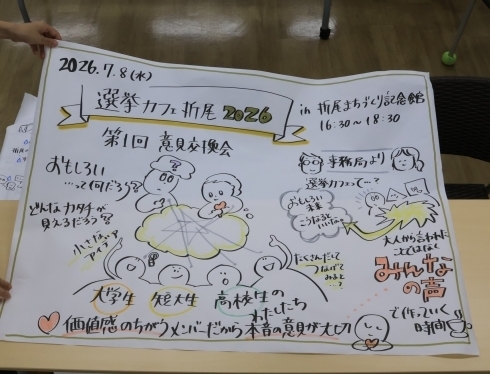 2026.7.8(水)
選挙カフェ折尾 2026
in 折尾まちづくり記念館
16:30～18:30
第1回 意見交換会
おもしろい
…って何だろう?
どんなカタチが
見えるだろう?
小さなアイデア
事務局より
選挙カフェって…?
おもしろい
未来
こうなるといいな
たくさんだして
つなげて
みると…?
大人から言われた
ことではなく
みんな
の声
で作っていく
時間
大学生 短大生 高校生の
わたしたち
価値感のちがうメンバーだから本音の意見が大切